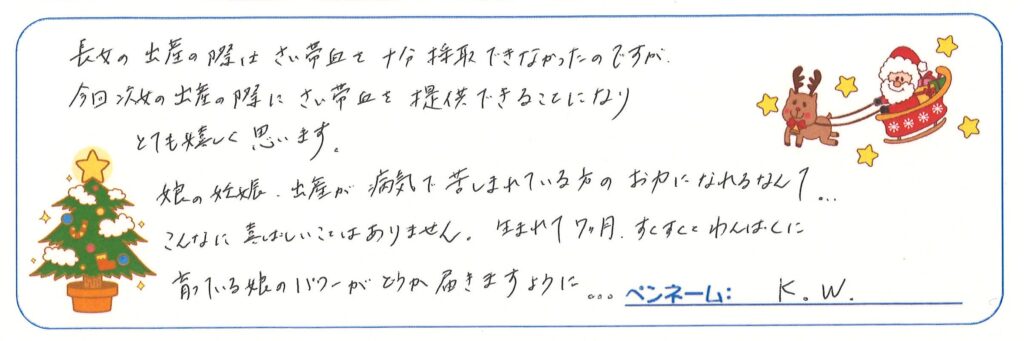 長女の出産の際はさい帯血を十分採取できなかったのですが、
今回次女の出産の際にさい帯血を提供できることになり
とても嬉しく思います。
娘の妊娠、出産が病気で苦しまれている方のお力になれるなんて...
こんなに喜ばしいことはありません。生まれて7ヶ月、すくすくとわんぱくに
育っている娘のパワーがどうか届きますように...
ペンネーム: K.W.